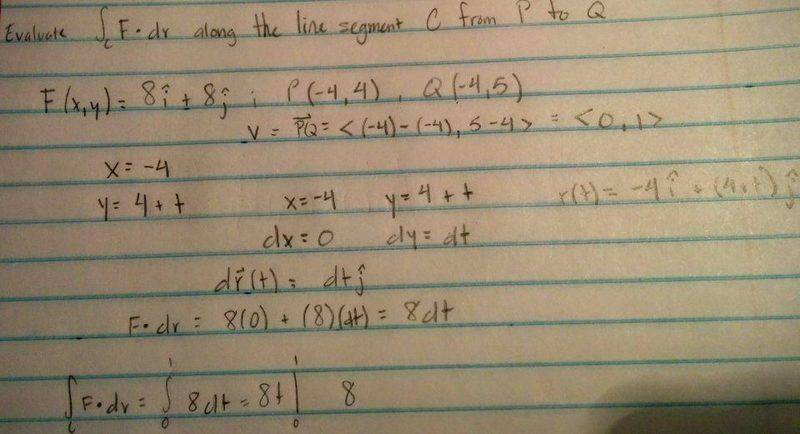 Evaluate ∫_C F•dr along the line segment C from P to Q
F(x,y) = 8î + 8ĵ ; P(-4,4), Q(-4,5)
V = P⃗Q = <(-4)-(-4), 5-4> = <0,1>
x = -4
y = 4 + t x = -4 y = 4 + t r(t) = -4î + (4+t)ĵ
dx = 0 dy = dt
dr⃗(t) = dt ĵ
F•dr = 8(0) + (8)(dt) = 8dt
∫_C F•dr = ∫_0^1 8dt = 8t |_0^1 8